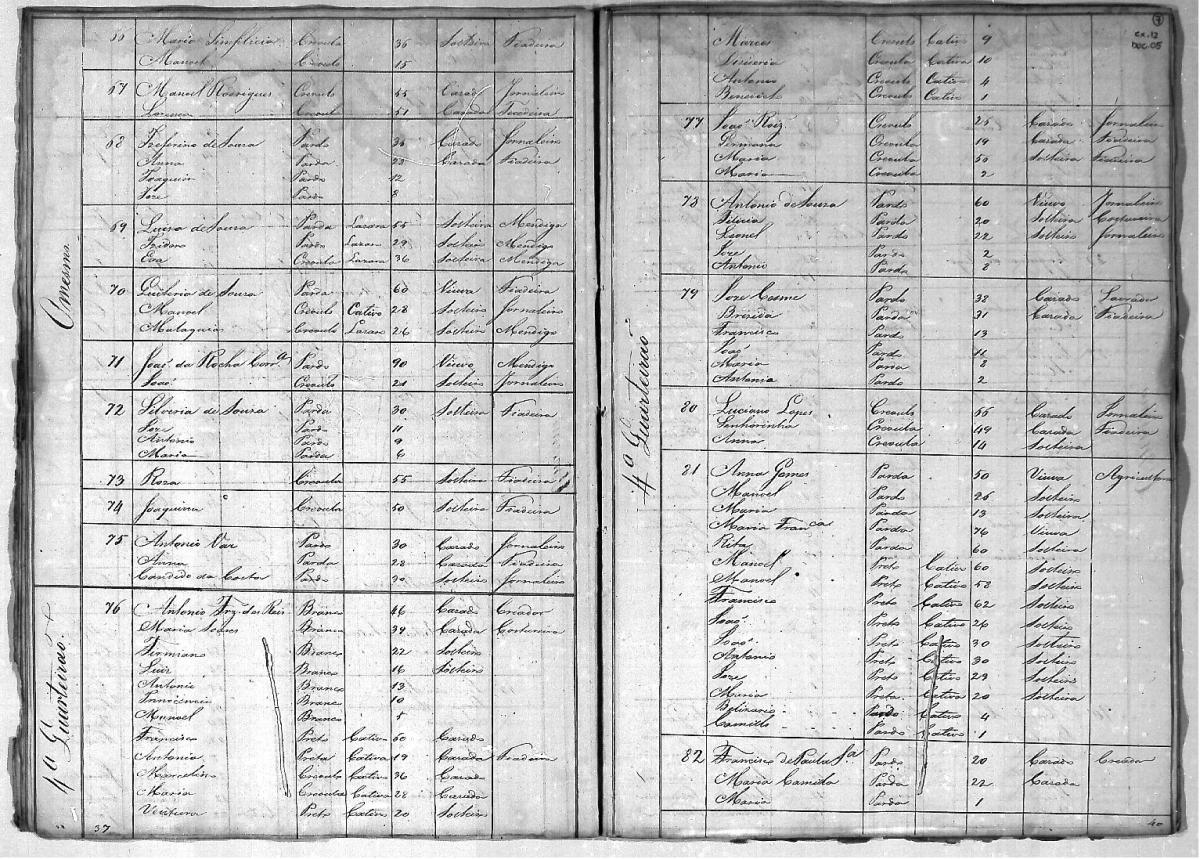 O mesmo
66 Maria Simplicia Creoula 36 Solteira Fiadeira
Manoel Creoulo 15
67 Manoel Rodrigues Creoulo 55 Casado Jornaleiro
Lourença Creoula 51 Casada Fiadeira
68 Zeferino de Souza Pardo 36 Casado Jornaleiro
Anna Parda 23 Casada Fiadeira
Joaquim Pardo 12
Joze Pardo 8
69 Luiza de Souza Parda Lazara 55 Solteira Mendiga
Izidoro Pardo Lazaro 29 Solteiro Mendigo
Eva Creoula Lazara 36 Solteira Mendiga
70 Quiteria de Souza Parda 60 Viuva Fiadeira
Manoel Creoulo Cativo 28 Solteiro Jornaleiro
Malaquias Creoulo Lazaro 26 Solteiro Mendigo
71 Joaõ da Rocha Pardo 90 Viuvo Mendigo
Joaõ Creoulo 21 Solteiro Jornaleiro
72 Silveria de Souza Parda 30 Solteira Fiadeira
Joze Pardo 11
Antonio Pardo 9
Maria Parda 6
73 Roza Creoula 55 Solteira Fiadeira
74 Joaquina Creoula 50 Solteira Fiadeira
75 Antonio Vaz Pardo 30 Casado Jornaleiro
Anna Parda 28 Casada Fiadeira
Candido da Costa Pardo 30 Solteiro Jornaleiro
4º Quarteiraõ
76 Antonio Frz' dos Reis Branco 46 Casado Creador
Maria Soares Branca 39 Casada Costureira
Firmiano Branco 22 Solteiro
Luiz Branco 16 Solteiro
Antonio Branco 13
Innocencio Branco 10
Manoel Branco 5
Francisco Preto Cativo 50 Casado
Antonia Preta Cativa 19 Casada Fiadeira
Marcelino Creoulo Cativo 36 Casado
Maria Creoula Cativa 28 Casada
Ventura Preto Cativo 20 Solteiro
37
7
cx.12
DOC.05
4º Quarteiraõ
Marcos Creoulo Cativo 9
Creoula Cativa 10
Antonio Creoulo Cativo 4
Benedicto Creoulo Cativo 1
77 Joaõ Roiz' Creoulo 25 Casado Jornaleiro
Germana Creoula 19 Casada Fiadeira
Maria Creoula 50 Solteira Fiadeira
Maria Creoula 2
78 Antonio de Souza Pardo 60 Viuvo Jornaleiro
Parda 20 Solteira Costureira
Leonel Pardo 22 Solteiro Jornaleiro
Joze Pardo 2
Antonia Parda 8
79 Joze Cosme Pardo 38 Casado Lavrador
Brizida Parda 31 Casada Fiadeira
Francisco Pardo 13
Joaõ Pardo 11
Maria Parda 8
Antonio Pardo 2
80 Luciano Lopes Creoulo 55 Casado Jornaleiro
Senhorinha Creoula 49 Casada Fiadeira
Anna Creoula 14 Solteira
81 Anna Gomes Parda 50 Viuva Agricultora
Manoel Pardo 26 Solteiro
Maria Parda 13 Solteira
Maria Franca Parda 76 Viuva
Rita Parda 60 Solteira
Manoel Preto Cativo 60 Solteiro
Manoel Preto Cativo 58 Solteiro
Francisco Preto Cativo 62 Solteiro
Joaõ Preto Cativo 26 Solteiro
Joaõ Preto Cativo 30 Solteiro
Antonio Preto Cativo 30 Solteiro
Joze Preto Cativo 29 Solteiro
Maria Preta Cativa 20 Solteira
Belizario Pardo Cativo 4
Camillo Pardo Cativo 1
82 Francisco de Paula Sª Pardo 20 Casado Creador
Maria Camila Parda 22 Casada
Maria Parda 1
40